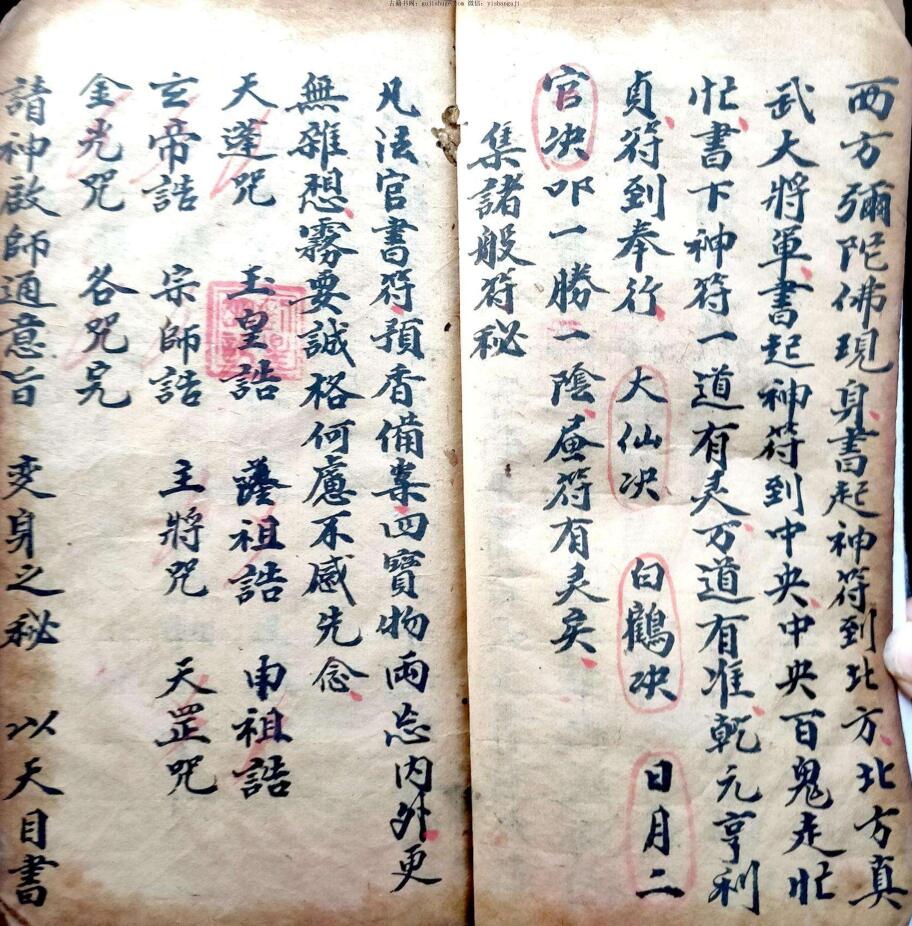 古籍书网：gujishuge.com 微信：yishanguji
西方彌陀佛現身書起神符到北方北方真
武大將軍書起神符到中央中央百鬼走忙
忙書下神符一道有灵万道有准乾元亨利
貞符到奉行 大仙决 白鶴决 日月二
官决吅一勝一陰𢈪符有灵矣
集諸般符秘
凡法官書符預香備案四寶物兩忘内外更
無雜想霧要誠格何慮不感先念
天蓬咒 玉皇誥 薩祖誥 申祖誥
玄帝誥 宗師誥 主將咒 天罡咒
金光咒 各咒完
請神啟師通意旨 变身之秘 以天目書